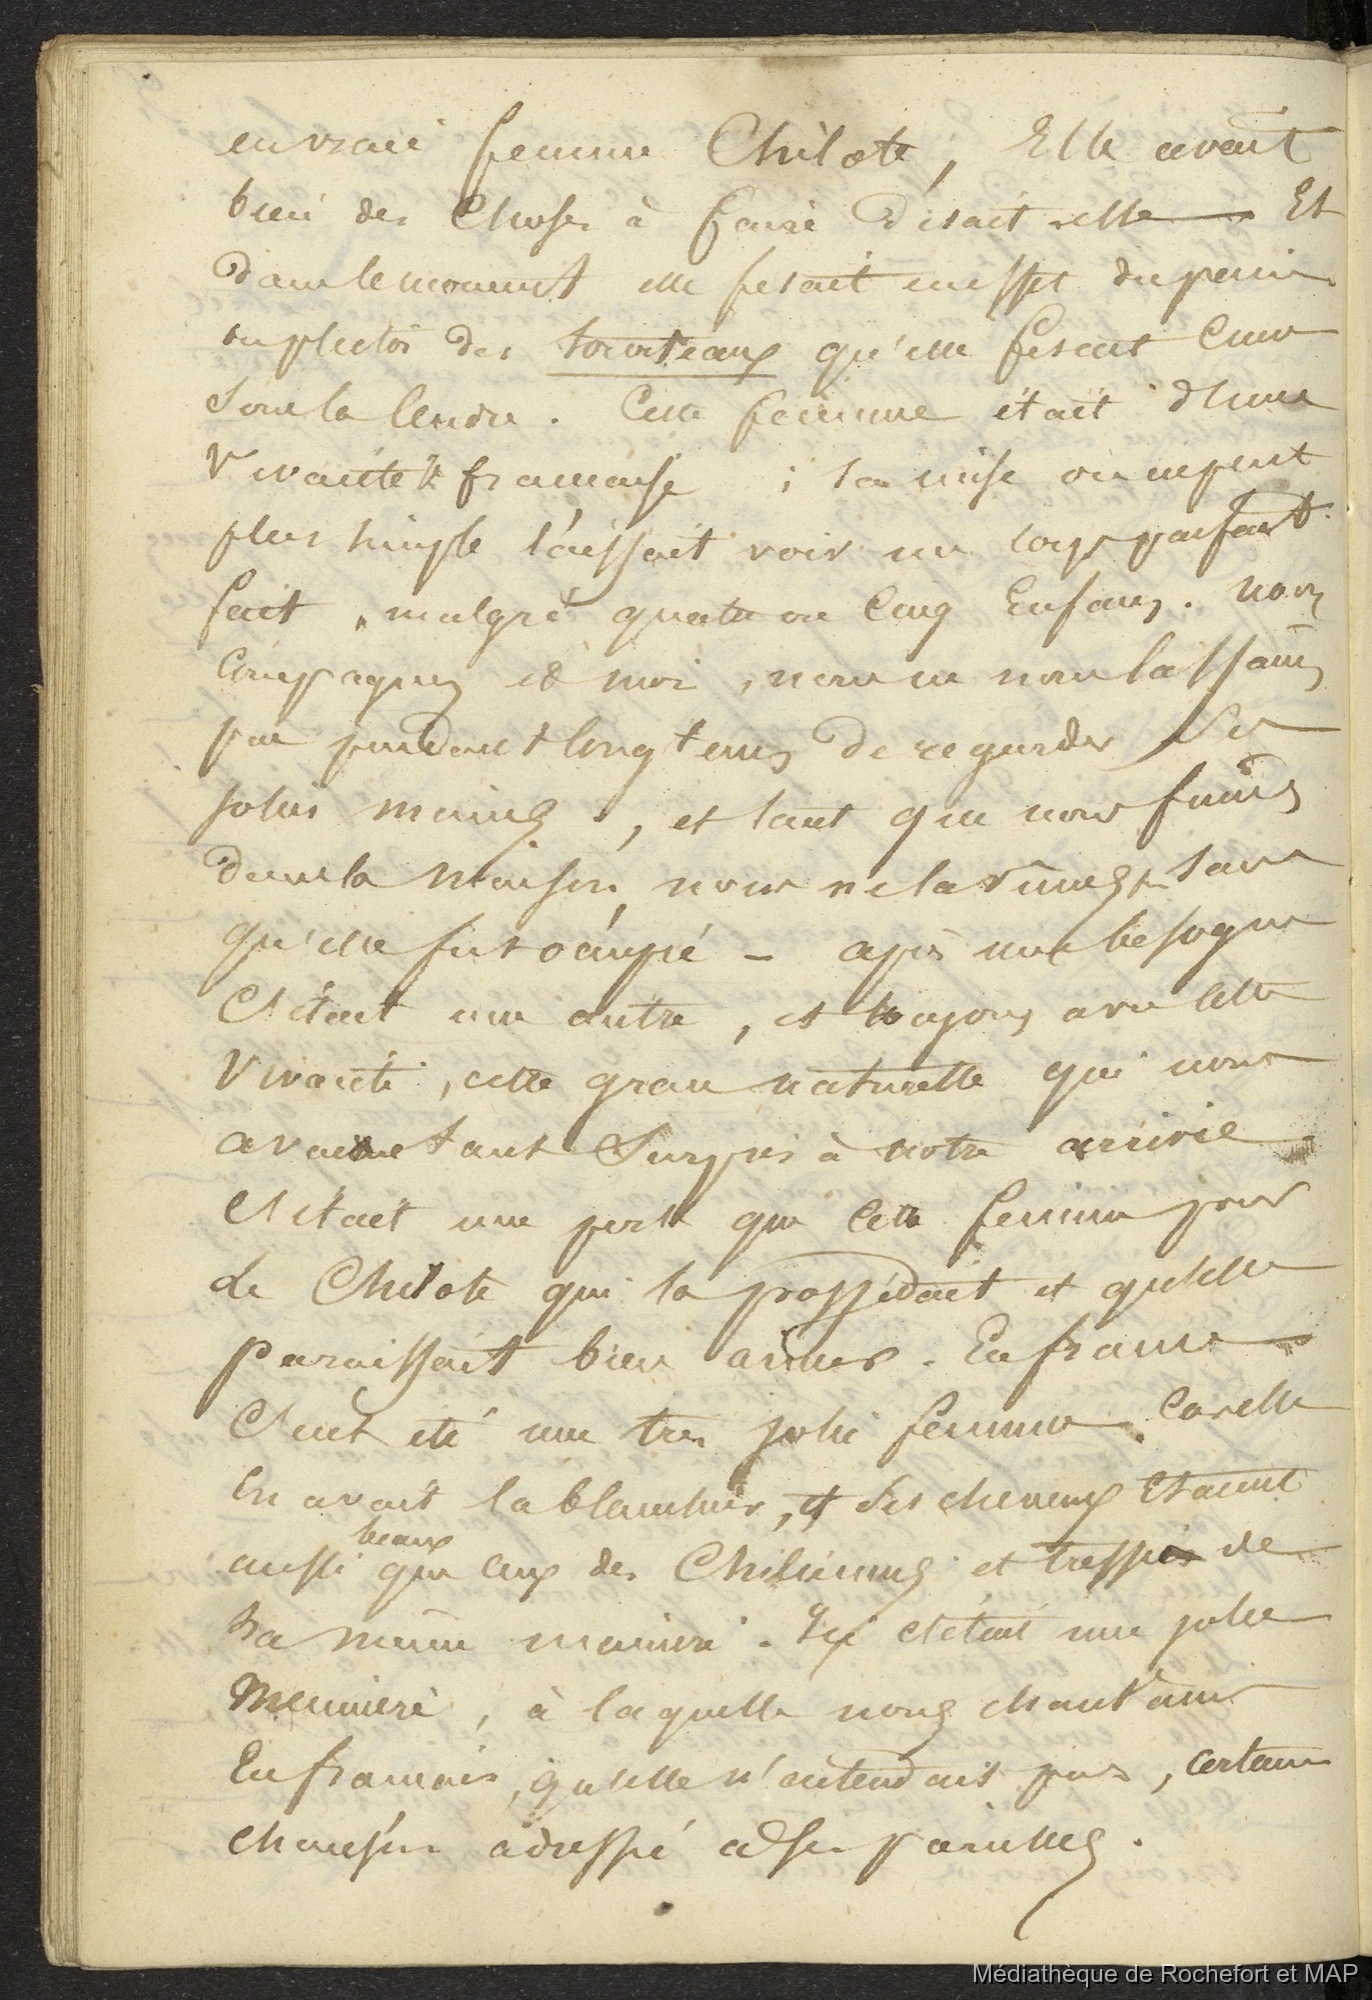 en vraie femme Chilote, Elle avait
bien des choses à faire disait-elle — Et
dans le moment elle fesait en effet du pain
ou plutôt des tourteaux qu'elle fesait cuire
sous la cendre. Cette femme était d'une
vivacité française ; sa mise on ne peut
plus simple laissait voir un corps parfait
fait, malgré quatre ou cinq Enfans. nos
compagnes et moi, nous ne nous lassames
pas pendant longtems de regarder ses
jolies mains, et tant que nous fumes
dans la maison, nous ne la vîmes sans
qu'elle fut ocupié — après une besogne
c'était une autre, et toujours avec cette
vivacité, cette grace naturelle qui nous
avaient tant surpris à notre arrivée.
c'était une perle que cette femme pour
le Chilote qui la possédait et qu'elle
paraissait bien aimer. En france
c'eut été une tres jolie femme. Car elle
en avait la blancheur, et ses cheveux étaient
aussi beaux que ceux des Chiliennes et tressés de
la même manière. Ici c'était une jolie
meunière, à laquelle nous chantames
En francais, qu'elle n'entendait pas, certaine
chanson adressée à ses pareilles.
Médiathèque de Rochefort et MAP